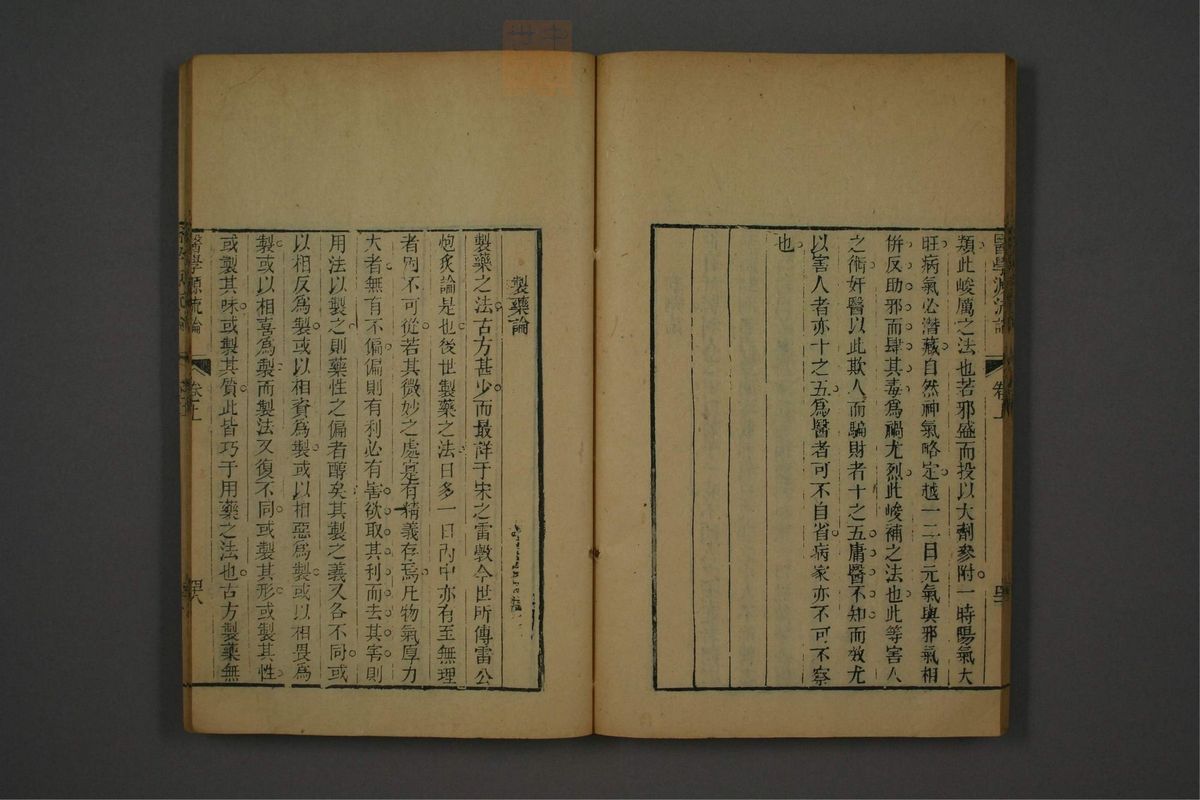 類此峻厲之法也若邪盛而投以大劑參附一時陽氣大
旺病氣必潛藏自然神氣略定越一二日元氣與邪氣相
併反助邪而肆其毒爲禍尤烈此峻補之法也此等害人
之術奸醫以此欺人而騙財者十之五庸醫不知而效尤
以害人者亦十之五爲醫者可不自省病家亦不可不察
也
製藥論
製藥之法古方甚少而最詳于宋之雷斆今世所傳雷公
炮炙論是也後世製藥之法日多一日內中亦有至無理
者固不可從若其微妙之處寔有精義存焉凡物氣厚力
大者無有不偏偏則有利必有害欲取其利而去其害則
用法以製之則藥性之偏者醇矣其製之義又各不同或
以相反爲製或以相資爲製或以相惡爲製或以相畏爲
製或以相喜爲製而製法又復不同或製其形或製其性
或製其味或製其質此皆巧于用藥之法也古方製藥無
醫學源流論
卷上